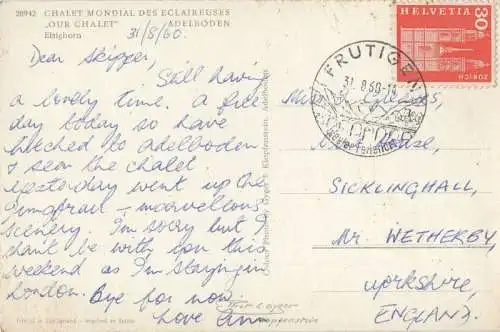 28942 CHALET MONDIAL DES ECLAIREUSES
„OUR CHALET" ADELBODEN
Elsighorn
31/8/60.
Dear Skipper,
Still having
a lovely time. A free
day today so have
hitched to Adelboden
& seen the chalet.
Yesterday went up the
Jungfrau - marvellous
scenery. I'm sorry but I
shan't be with you this
weekend as I'm staying in
London. Bye for now
Love Ann
Klopfenstein, Adelboden
HELVETIA
30
ZÜRICH
FRUTIGEN
31.8.60-1
SICKLINGHALL,
Nr. WETHERBY,
YORKSHIRE,
ENGLAND.